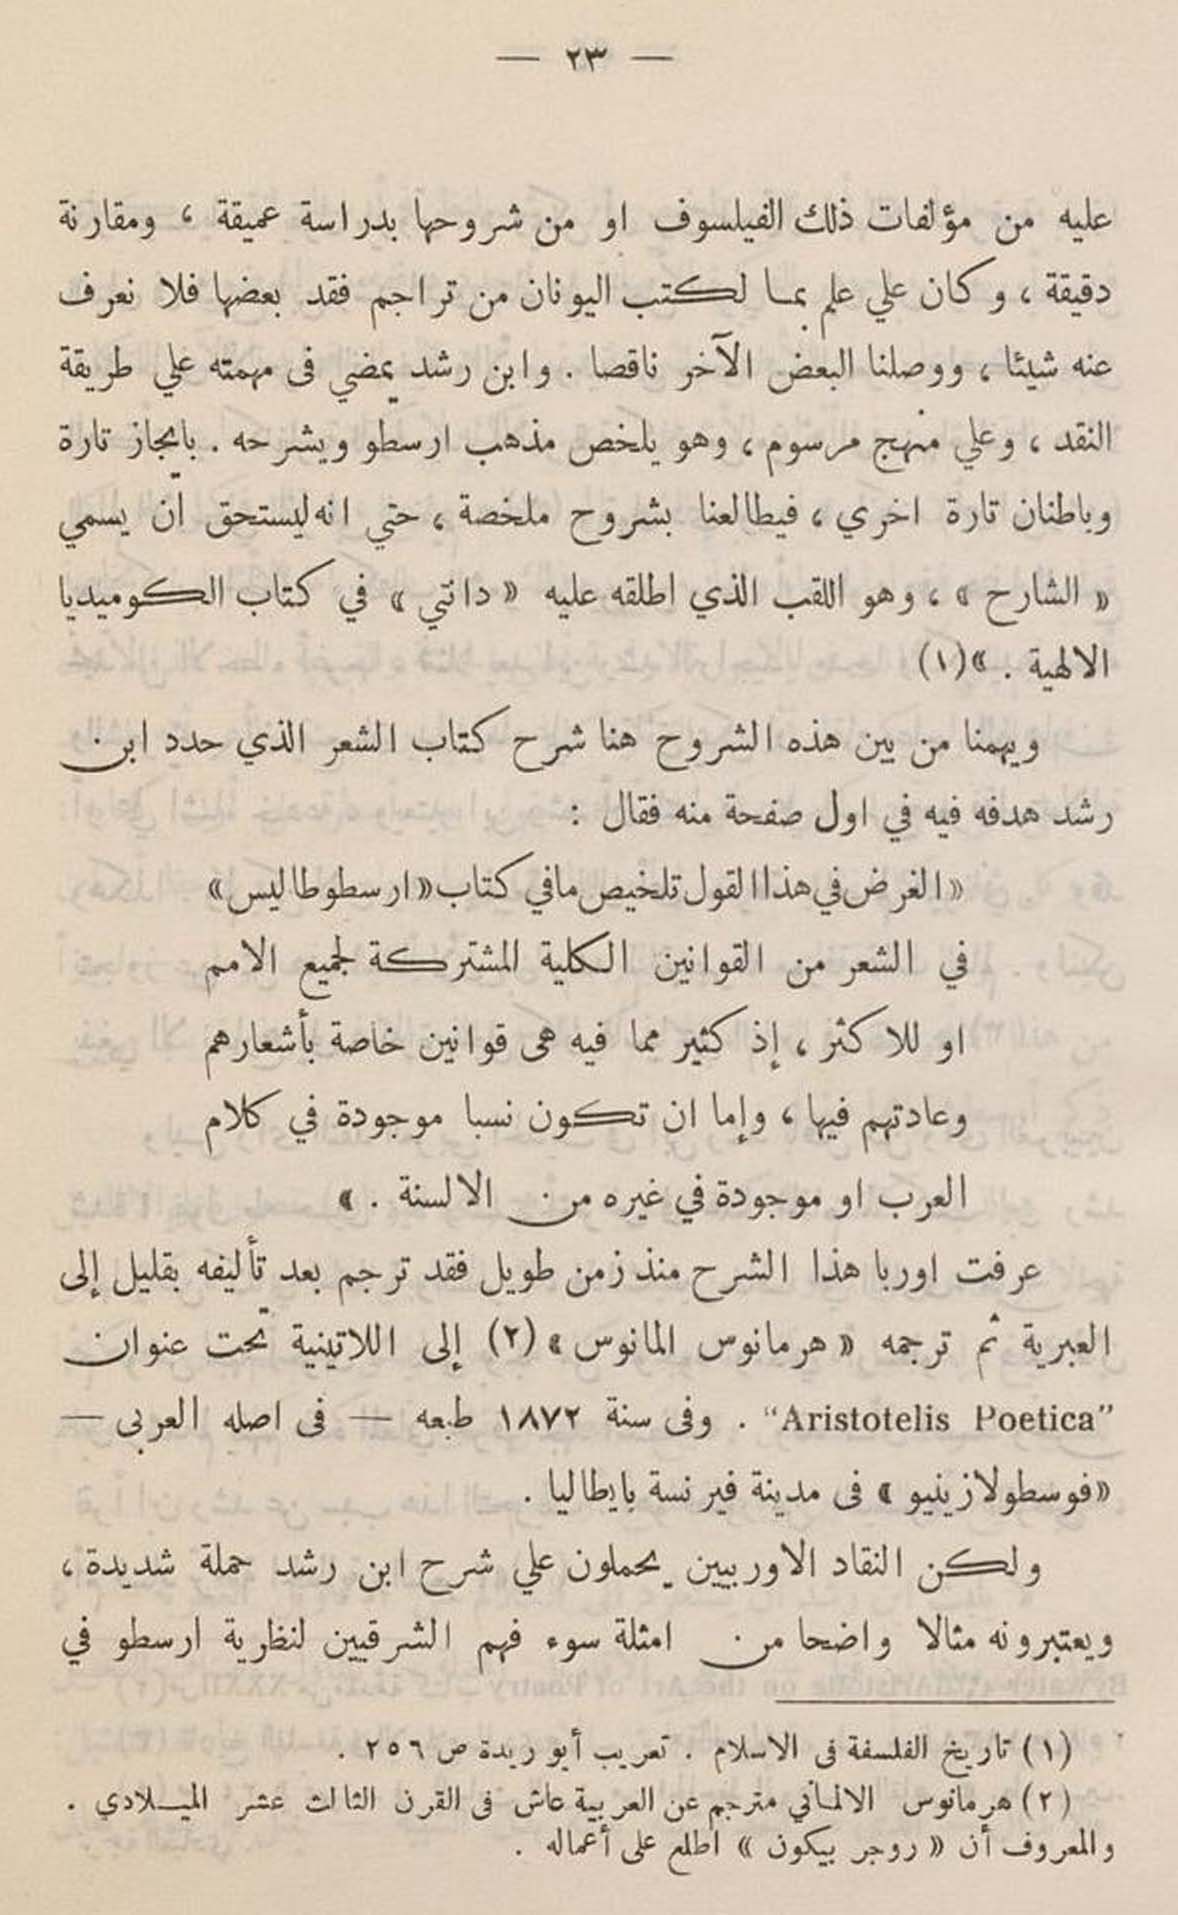 — ٢٣ —
عليه من مؤلفات ذلك الفيلسوف او من شروحها بدراسة عميقة ، ومقارنة
دقيقة ، وكان علي علم بمـا لكتب اليونان من تراجم فقد بعضها فلا نعرف
عنه شيئا ، ووصلنا البعض الآخر ناقصا . وابن رشد يمضي فى مهمته علي طريقة
النقد ، وعلي منهج مرسوم ، وهو يلخص مذهب ارسطو ويشرحه . بايجاز تارة
وباطنان تارة اخري ، فيطالعنا بشروح ملخصة ، حتي انه ليستحق ان يسمي
« الشارح » ، وهو اللقب الذي اطلقه عليه « دانتي » في كتاب الكوميديا
الالهية . »(١)
ويهمنا من بين هذه الشروح هنا شرح كتاب الشعر الذي حدد ابن
رشد هدفه فيه في اول صفحة منه فقال :
«الغرض في هذا القول تلخيص ما في كتاب «ارسطوطاليس»
في الشعر من القوانين الكلية المشتركة لجميع الامم
او للاكثر ، إذ كثير مما فيه هى قوانين خاصة بأشعارهم
وعادتهم فيها ، وإما ان تكون نسبا موجودة في كلام
العرب او موجودة في غيره من الالسنة . »
عرفت اوربا هذا الشرح منذ زمن طويل فقد ترجم بعد تأليفه بقليل إلى
العبرية ثم ترجمه « هرمانوس المانوس » (٢) إلى اللاتينية تحت عنوان
"Aristotelis Poetica" . وفى سنة ١٨٧٢ طبعه — فى اصله العربى —
«فوسطولازينيو » فى مدينة فيرنسة بايطاليا .
ولكن النقاد الاوربيين يحملون علي شرح ابن رشد حملة شديدة ،
ويعتبرونه مثالا واضحا من امثلة سوء فهم الشرقيين لنظرية ارسطو في
(١) تاريخ الفلسفة فى الاسلام . تعريب أبو ريدة ص ٢٥٦ .
(٢) هرمانوس الالمـاني مترجم عن العربية عاش فى القرن الثالث عشر الميـلادي .
والمعروف أن « روجر بيكون » اطلع على أعماله .